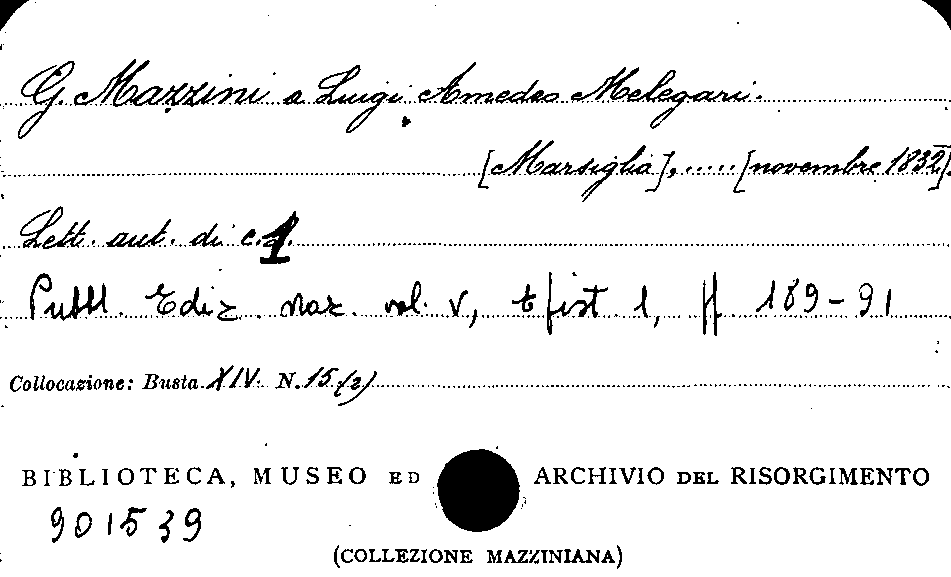 G. Mazzini a Luigi Amedeo Melegari.
[Marsiglia], ..... [novembre 1832].
Lett. aut. di c. 1.
Pubbl. Ediz. naz. vol. V, Epist. I, pp. 189-91
Collocazione: Busta XIV. N. 15 (2)
BIBLIOTECA, MUSEO ED ARCHIVIO DEL RISORGIMENTO
901539
(COLLEZIONE MAZZINIANA)